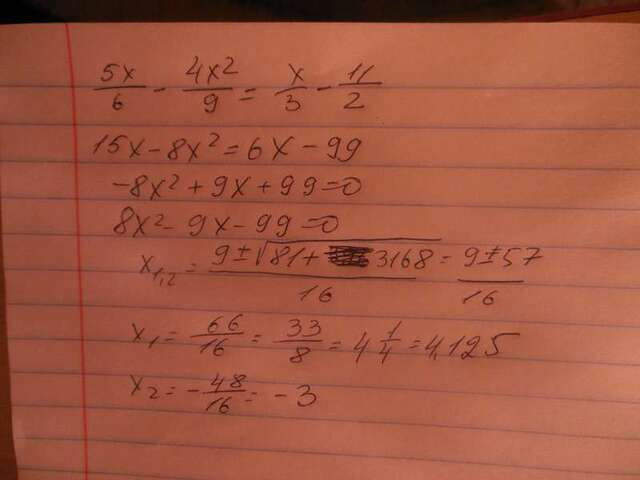 5x/6 - 4x²/9 = x/3 - 11/2
15x - 8x² = 6x - 99
-8x² + 9x + 99 = 0
8x² - 9x - 99 = 0
x₁,₂ = (9 ± √(81 + 3168))/16 = (9 ± 57)/16
x₁ = 66/16 = 33/8 = 4 1/4 = 4,125
x₂ = - 48/16 = - 3